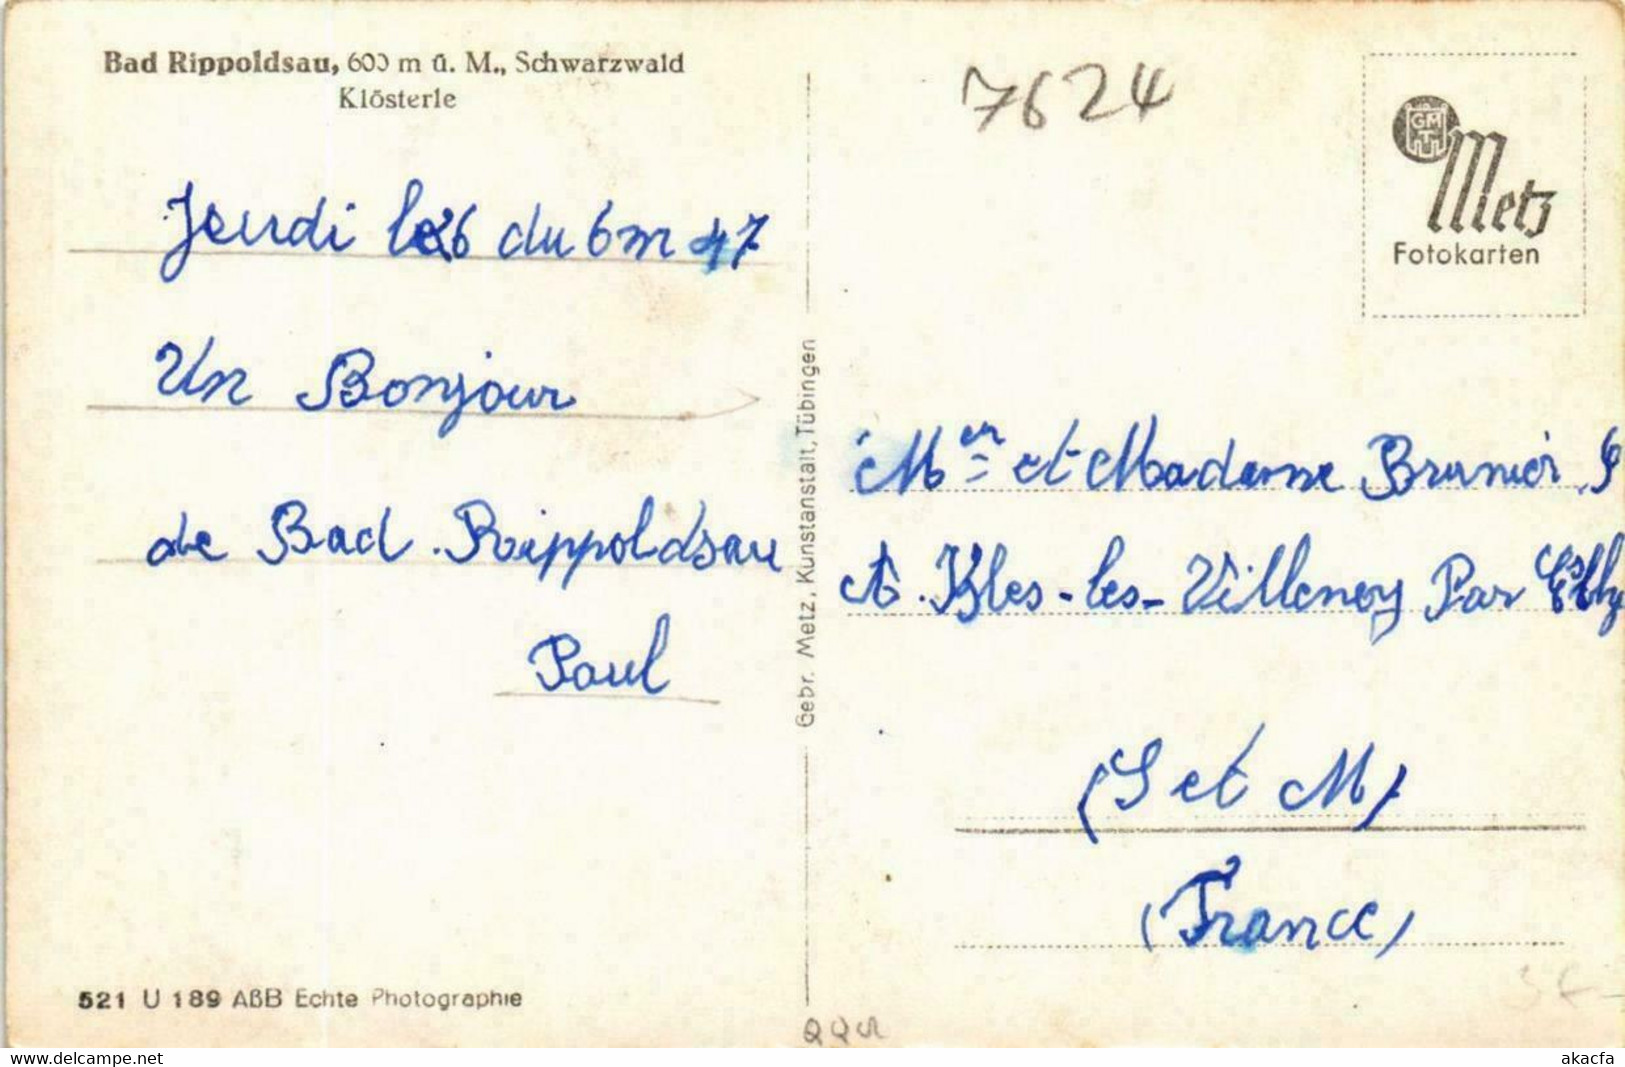 Bad Rippoldsau, 600 m ü. M., Schwarzwald
Klösterle
7624
GMT
Metz
Fotokarten
Jeudi le 26 du 6 m 47
Un Bonjour
de Bad. Rippoldsau
Paul
Gebr. Metz, Kunstanstalt, Tübingen
Mer et Madame Brunier
A. Bles-les-Villenoy Par Esbly
(S et M)
(France)
521 U 189 AßB Echte Photographie
www.delcampe.net
akacfa